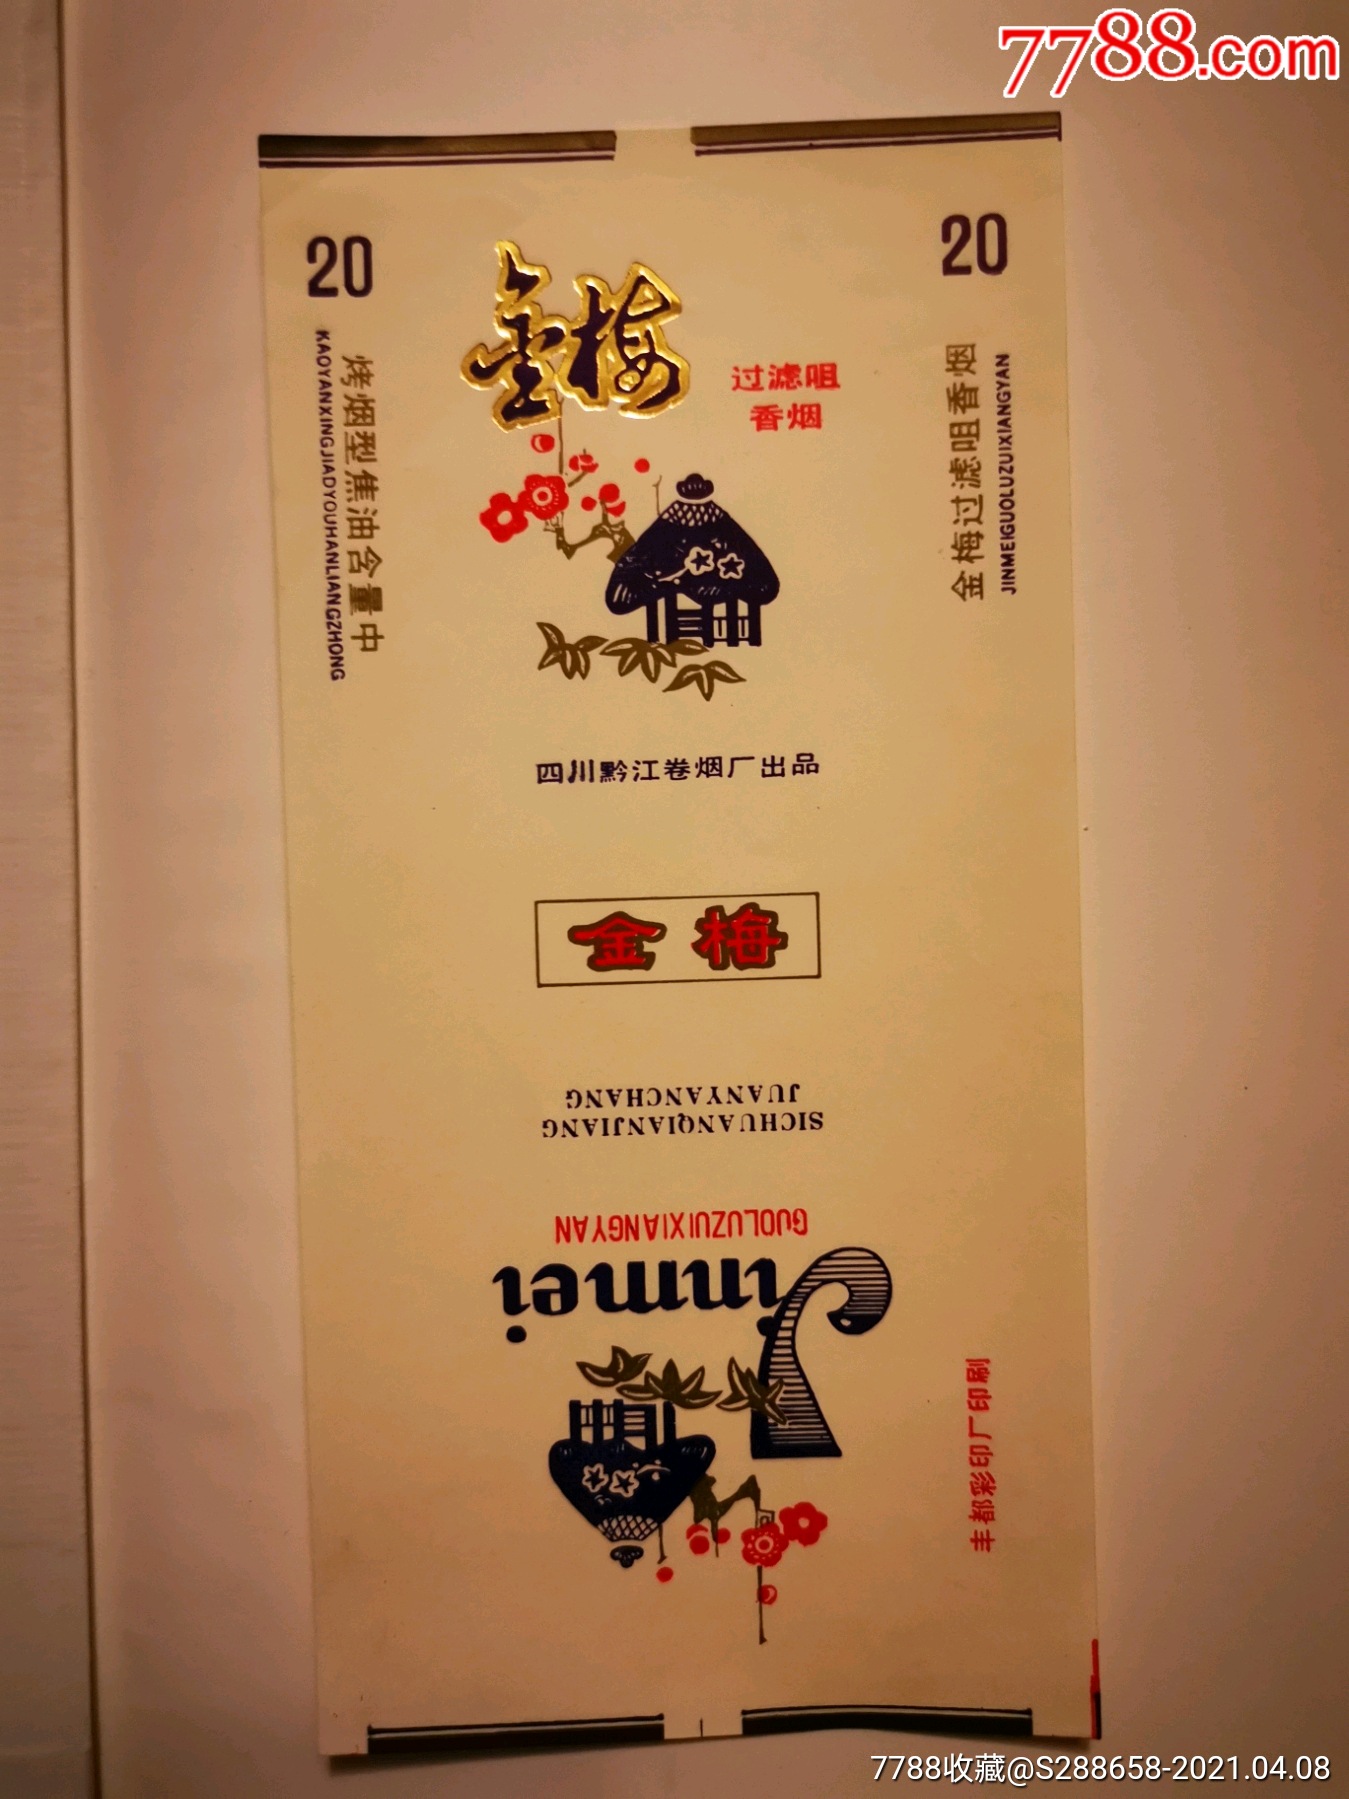 7788.com
20
烤烟型焦油含量中
KAOYANXINGJIAOYOUHANLIANGZHONG
金梅
过滤咀
香烟
20
金梅过滤咀香烟
JINMEIGUOLUZUIXIANGYAN
四川黔江卷烟厂出品
金梅
SICHUANQIANJIANG
JUANYANCHANG
GUOLUZUIXIANGYAN
Jinmei
丰都彩印厂印刷
7788收藏@S288658-2021.04.08